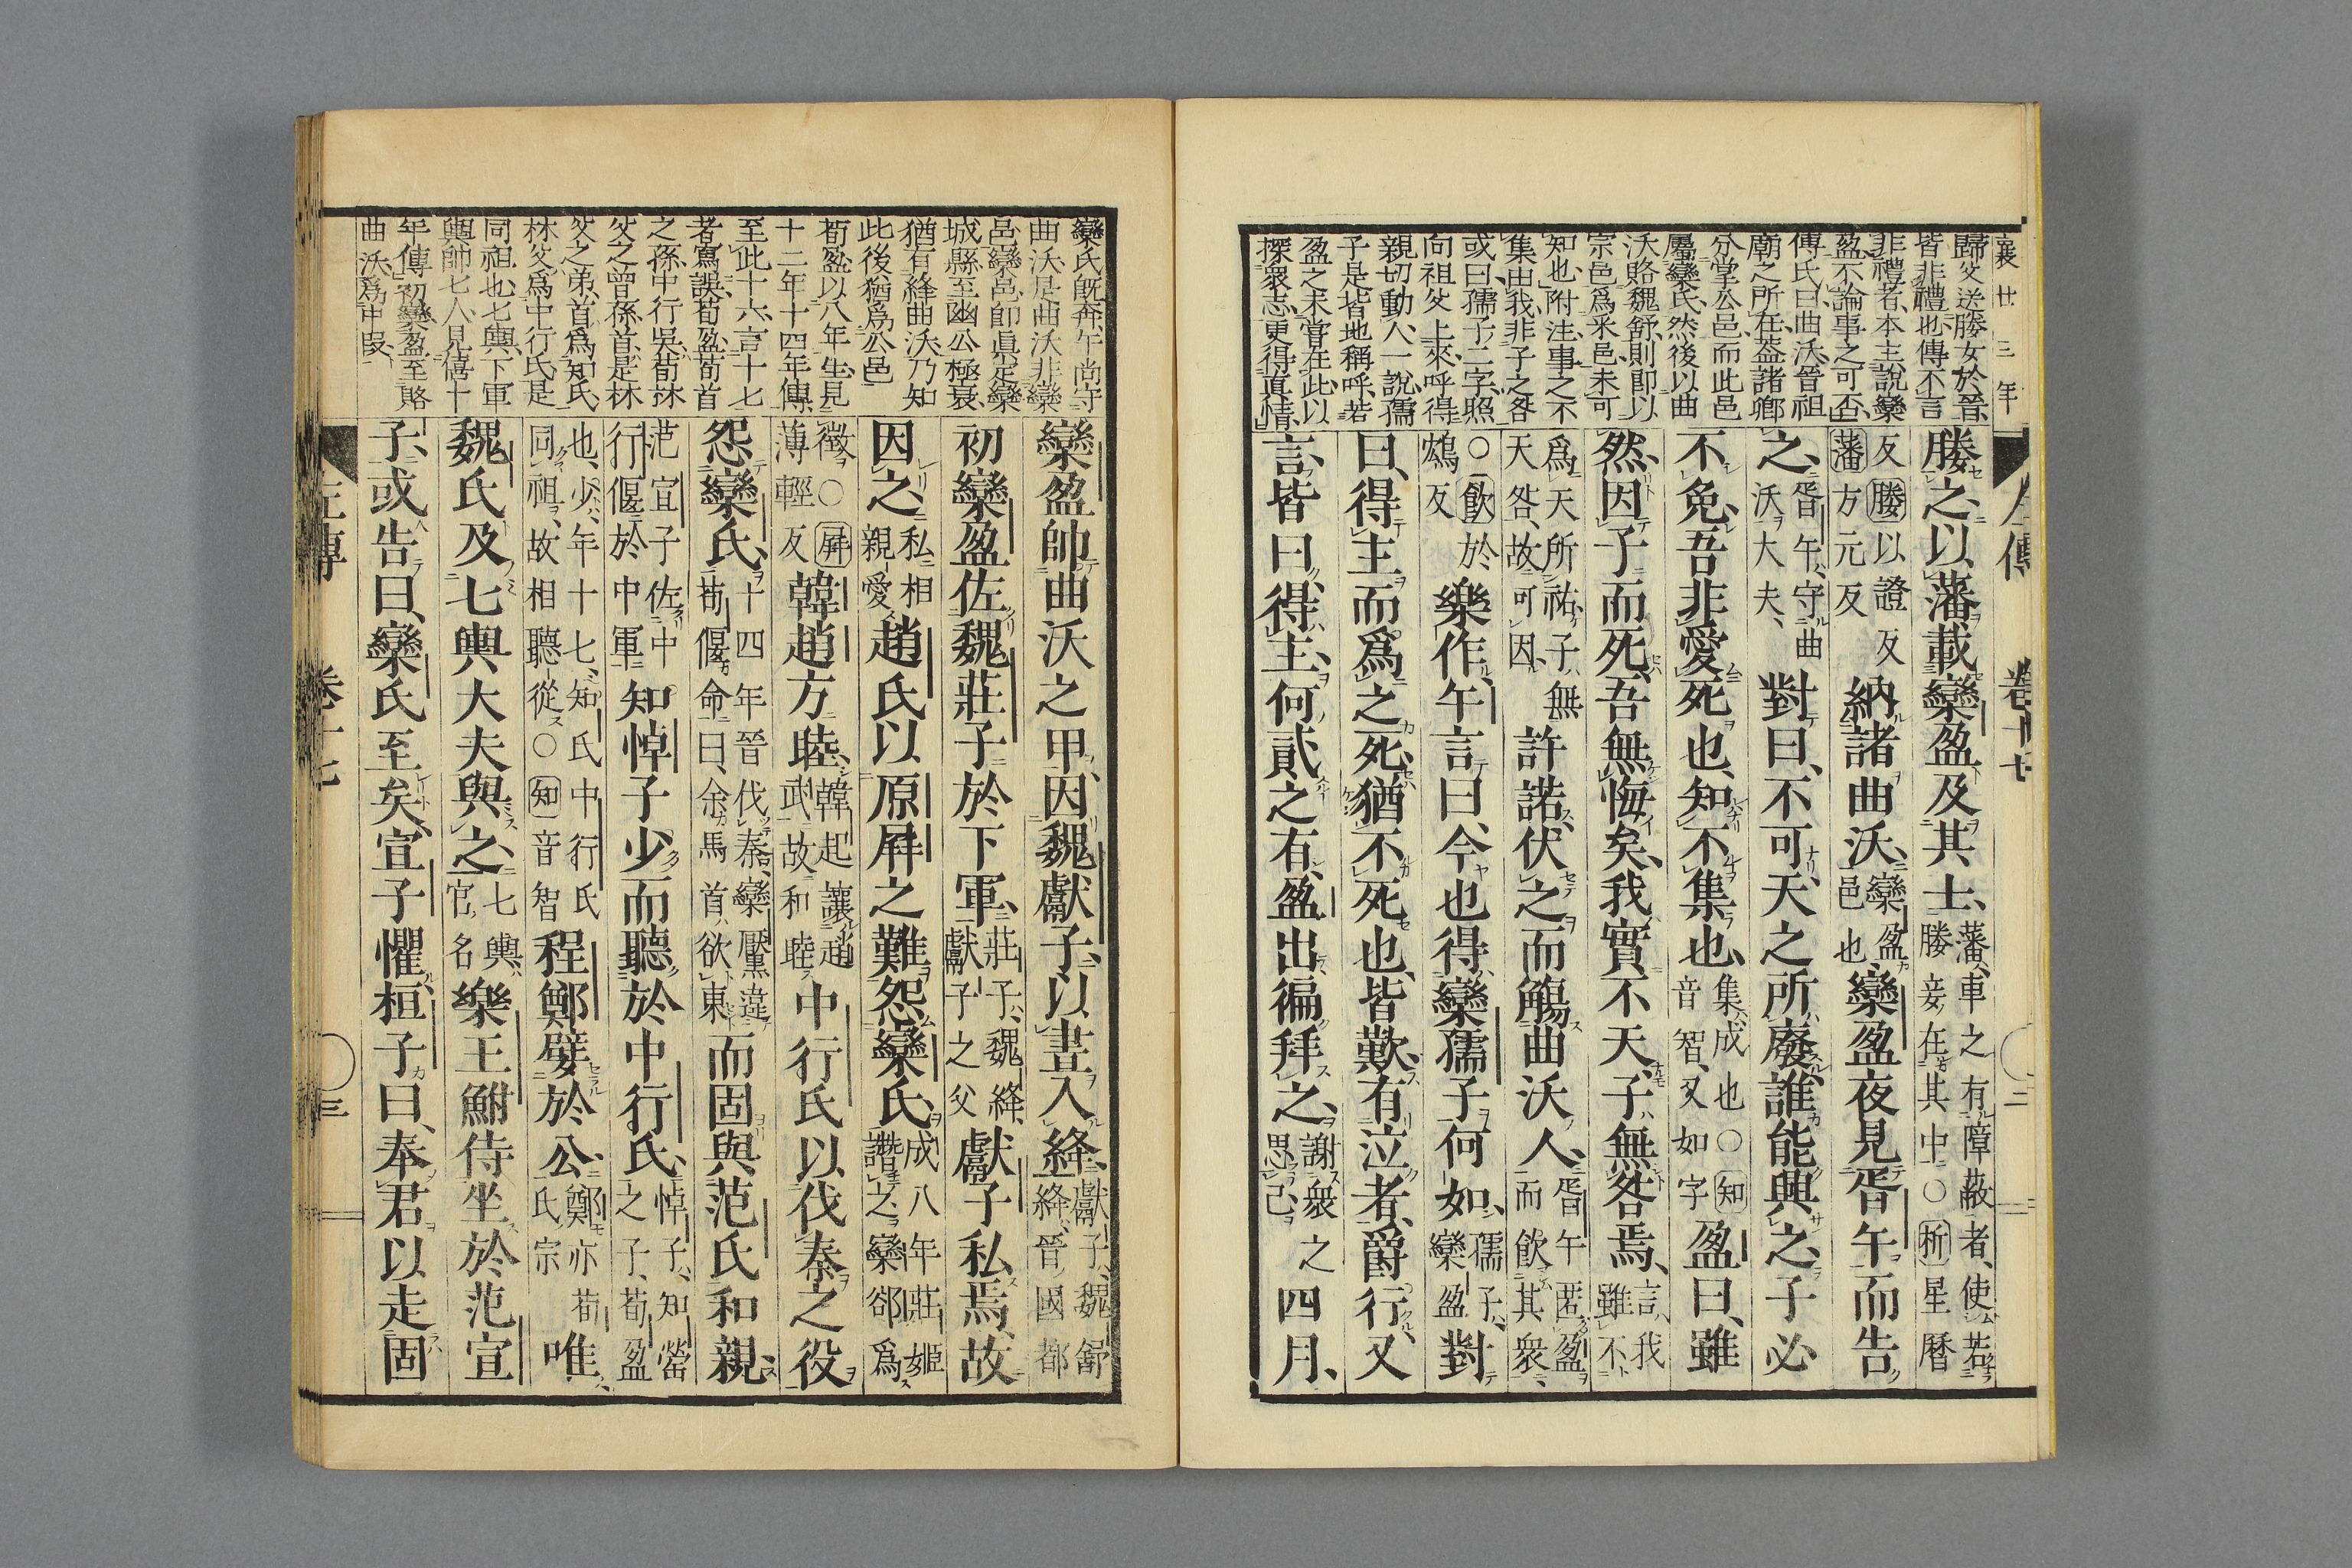 襄廿三年
歸父送媵女於晉、
皆非禮也、傳不言
非禮者、本主說欒
盈、不論事之可否、
傳氏曰、曲沃、晉祖
廟之所在、蓋諸鄉
分掌公邑、而此邑
屬欒氏、然後以曲
沃賂魏舒、則即以
宗邑爲采邑、未可
知也、附注、事之不
集、由我、非子之咎
或曰、孺子二字、照
向祖父上來、呼得
親切動人、一說、孺
子是皆地稱呼、若
盈之未嘗在此、以
探衆志、更得眞情、
媵之、以藩載欒盈及其士、藩、車之有障蔽者、使若媵妾在其中○析星曆
反媵以證反藩方元反納諸曲沃、欒盈邑也欒盈夜見胥午而告
之、胥午、守曲沃大夫、對曰、不可、天之所廢、誰能興之、子必
不免、吾非愛死也、知不集也、集、成也○知音智、又如字盈曰、雖
然、因子而死、吾無悔矣、我實不天、子無咎焉、言、我雖不
爲天所祐、子無天咎、故可因許諾、伏之而觴曲沃人、胥午匿盈而飲其衆、
○飲於鴆反樂作、午言曰、今也得欒孺子何如、孺子、欒盈對
曰、得主而爲之死、猶不死也、皆歎、有泣者、爵行、又
言、皆曰、得主、何貳之有、盈出徧拜之、謝衆之思己、四月、
傳
卷十七
二
欒氏既奔、午尚守
曲沃、是曲沃非欒
邑、欒邑卽眞定欒
城縣、至幽公極衰、
猶有絳曲沃、乃知
此後猶爲公邑
荀盈以八年生、見
十二年十四年傳、
至此十六、言十七
者寫誤、荀盈荀首
之孫、中行吳、荀林
父之曾孫、首、是林
父之弟、首爲知氏、
林父爲中行氏、是
同祖也、七輿、下軍
輿帥七人、見僖十
年傳、初欒盈至賂
曲沃、爲中段、
欒盈帥曲沃之甲、因魏獻子、以晝入絳、獻子、魏舒絳、晉國都
初欒盈佐魏莊子於下軍、莊子、魏絳獻子之父獻子私焉、故
因之、私相親愛趙氏以原屛之難怨欒氏、成八年莊姬譖之、欒郤爲
徵○屛薄輕反韓趙方睦、韓起讓趙武、故和睦中行氏以伐秦之役
怨欒氏、十四年晉伐秦、欒黶違荀偃命曰、余馬首欲東而固與范氏和親、
范宣子佐中行偃於中軍知悼子少而聽於中行氏、悼子、知罃之子、荀盈
也、少、年十七、知氏中行氏同祖、故相聽從○知音智程鄭嬖於公、鄭亦荀氏宗唯
魏氏及七輿大夫與之、七輿、官名樂王鮒侍坐於范宣
子、或告曰、欒氏至矣、宣子懼、桓子曰、奉君以走固
左傳
卷十七
三